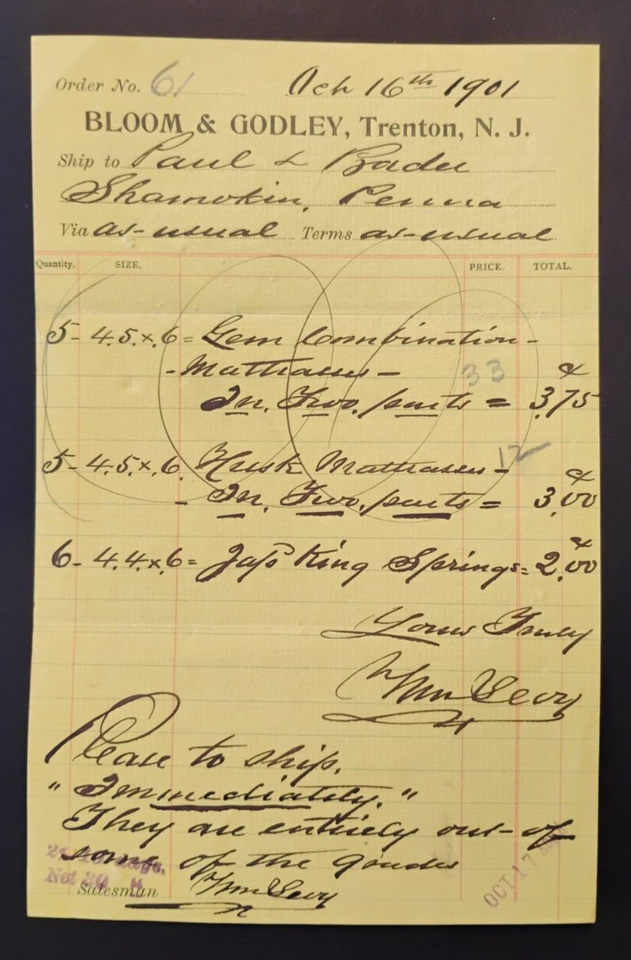 Order No. 61 Oct 16th 1901
BLOOM & GODLEY, Trenton, N. J.
Ship to Paul & Bader
Shamokin, Penna
Via as-usual Terms as-usual
Quantity. SIZE. PRICE. TOTAL.
5- 4.5.x.6= Gem Combination-
-Mattrasses- 33 @
In. Two. parts = 3.75
5- 4.5.x.6. Husk Mattrasses- 12 @
- In. Two. parts = 3.00
6- 4.4.x.6= Japs King Springs= @ 2.00
Yours Truly
Wm Levy
Please to ship.
"Immediately."
They are entirely out-of
some of the goods
Net 30 "
Salesman Wm Levy
OCT 17